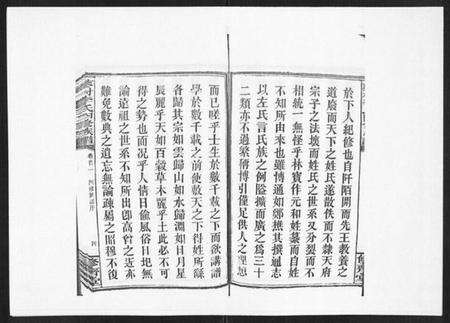 於下人紀修也自阡陌開而先王教養之
道廢而天下之姓氏遂散佚而不隸天府
宗子之法壞而姓氏之世系又分裂而不
相統一無怪乎林寶作元和姓纂而自姓
不知所由來也雖博通如鄭樵其撰通志
以左氏言氏族之例隘擴而廣之為三十
二類亦不過繁稱博引僅足供人之
而已嗟乎士生於數千載之下而欲講譜
學於數千載之前使救天之下得姓所繇
各歸其宗如雲歸山如水歸淵如日月星
辰麗乎天如百穀草木麗乎土此必不可
得之勢也而况乎人情日偷風俗日圯無
論遠祖之世系不知所出卽高曾之
難免數典之遺忘無論疎屬之昭穆不復